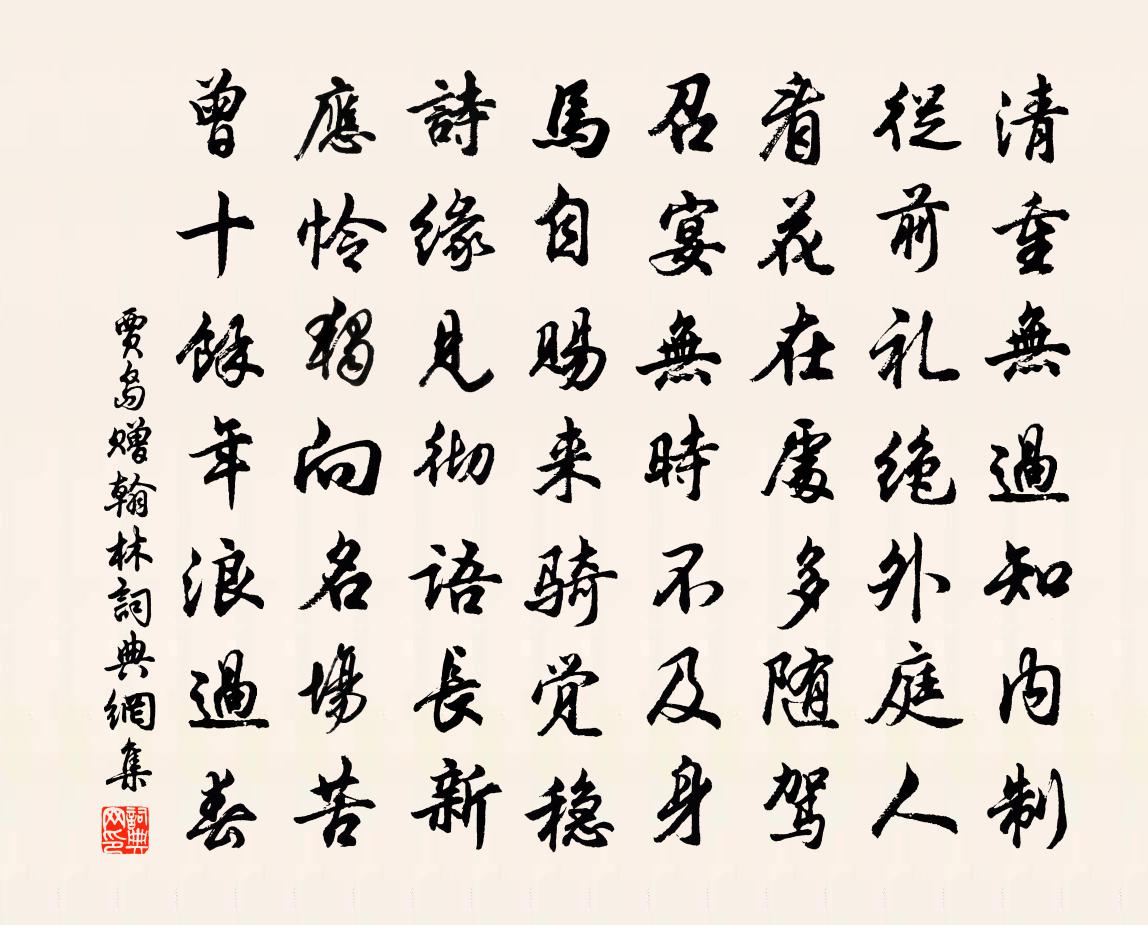 清重無過知内制
従前礼絶外庭人
看花在處多随駕
召宴無時不及身
馬自賜来騎覚穏
詩緣見徹語長新
應怜獨向名場苦
曾十餘年浪過春
賈島贈翰林詞典網集
詞典網印